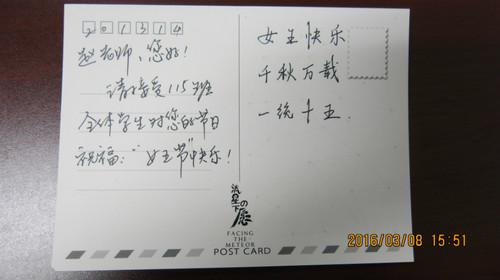 201314
赵老师、您好!
请接受115班
全体学生对您的节日
祝福:“女王节”快乐!
女王快乐
千秋万载
一统十五.
流星下の愿
FACING
THE
METEOR
POST CARD
2016/03/08 15:51